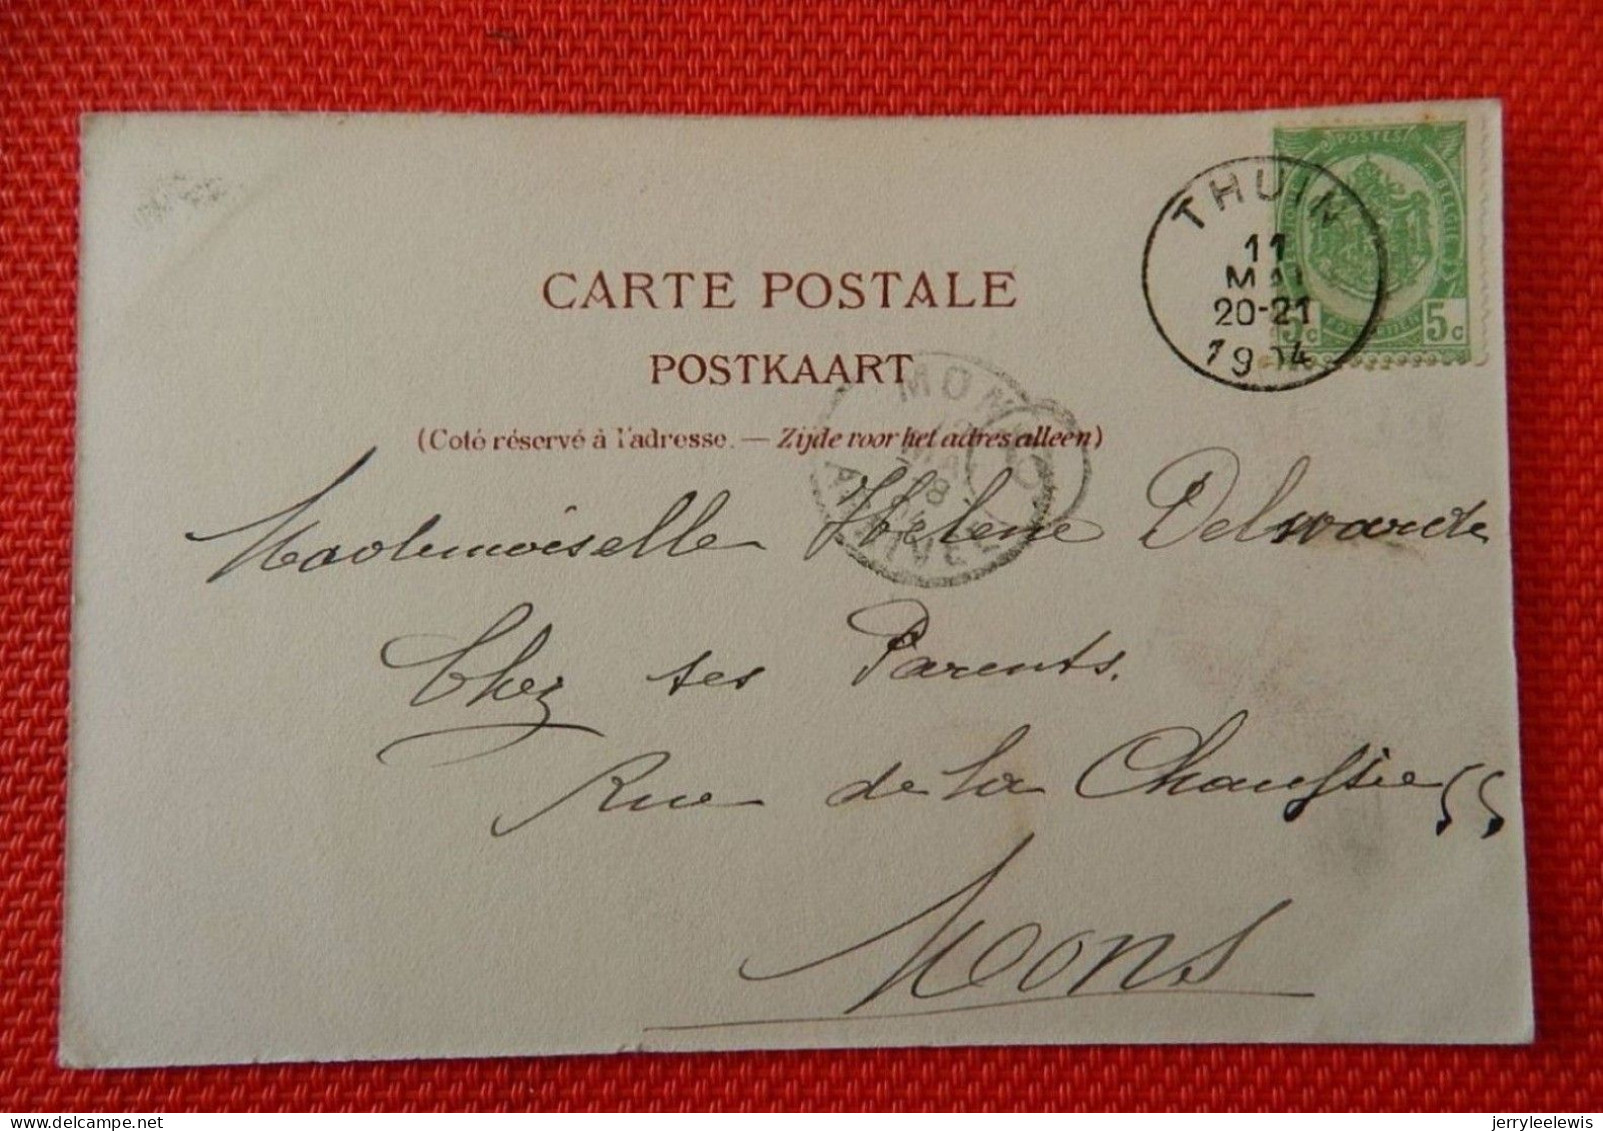 POSTES
BELGIE
5c 5c
THUIN
11
MAI
20-21
1904
CARTE POSTALE
POSTKAART
(Coté réservé à l'adresse. — Zijde voor het adres alleen)
MONS
MAI
8
ARRIVEE
Mademoiselle Hélène Delwarde
Chez ses Parents.
Rue de la Chaussée 55
Mons
jerryleelewis